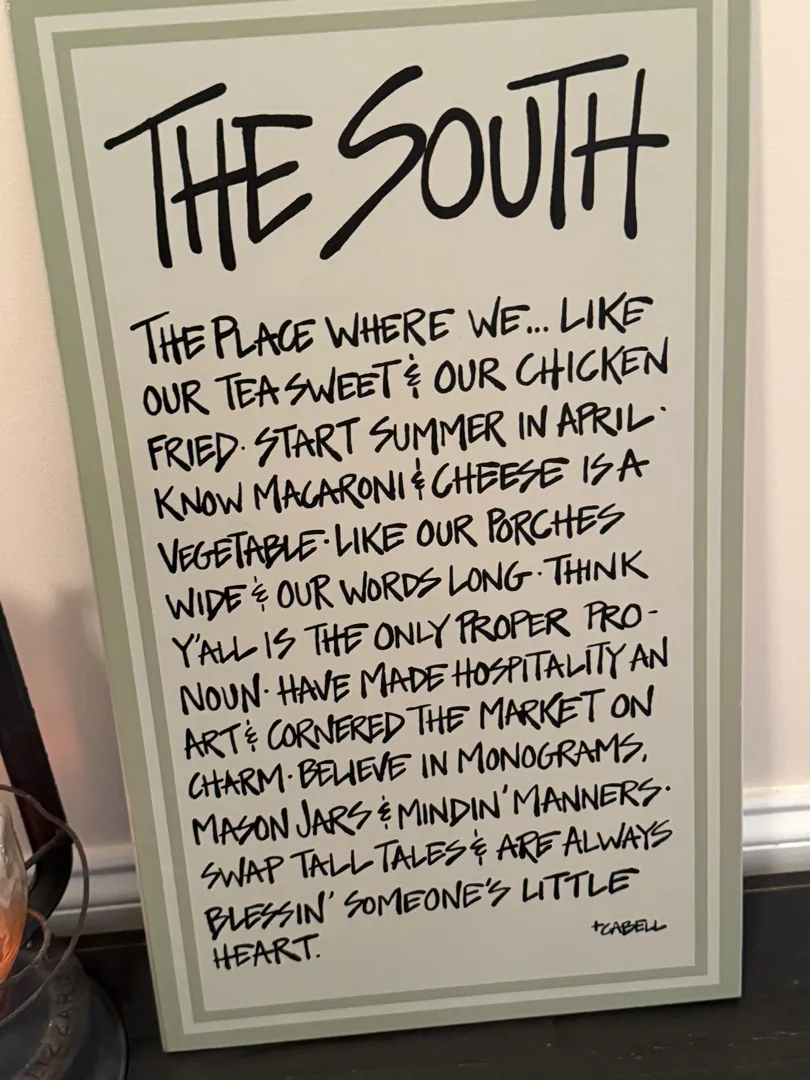 THE SOUTH
THE PLACE WHERE WE... LIKE
OUR TEA SWEET & OUR CHICKEN
FRIED· START SUMMER IN APRIL·
KNOW MACARONI & CHEESE IS A
VEGETABLE· LIKE OUR PORCHES
WIDE & OUR WORDS LONG· THINK
Y'ALL IS THE ONLY PROPER PRO-
NOUN· HAVE MADE HOSPITALITY AN
ART & CORNERED THE MARKET ON
CHARM· BELIEVE IN MONOGRAMS,
MASON JARS & MINDIN' MANNERS·
SWAP TALL TALES & ARE ALWAYS
BLESSIN' SOMEONE'S LITTLE
HEART.
+CABELL